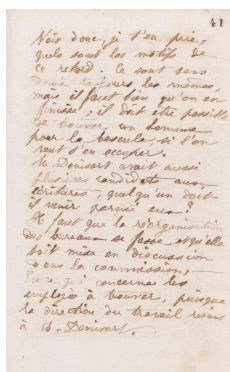 41
Vois donc, je t'en prie,
quels sont les motifs de
ce retard. Ce sont sans
doute toujours les mêmes,
mais il faut bien qu'on en
finisse ; il doit être possible
de trouver un homme
pour la bascule, si l'on
veut s'en occuper.
M. Denisart avait aussi
plusieurs candidats aux
écritures, quelqu'un doit-
il venir parmi eux ?
Il faut que la réorganisation
des bureaux se fasse, et qu'elle
soit mise en discussion
dans la commission,
en ce qui concerne les
employés à trouver, puisque
la direction du travail revient
à M. Denisart.